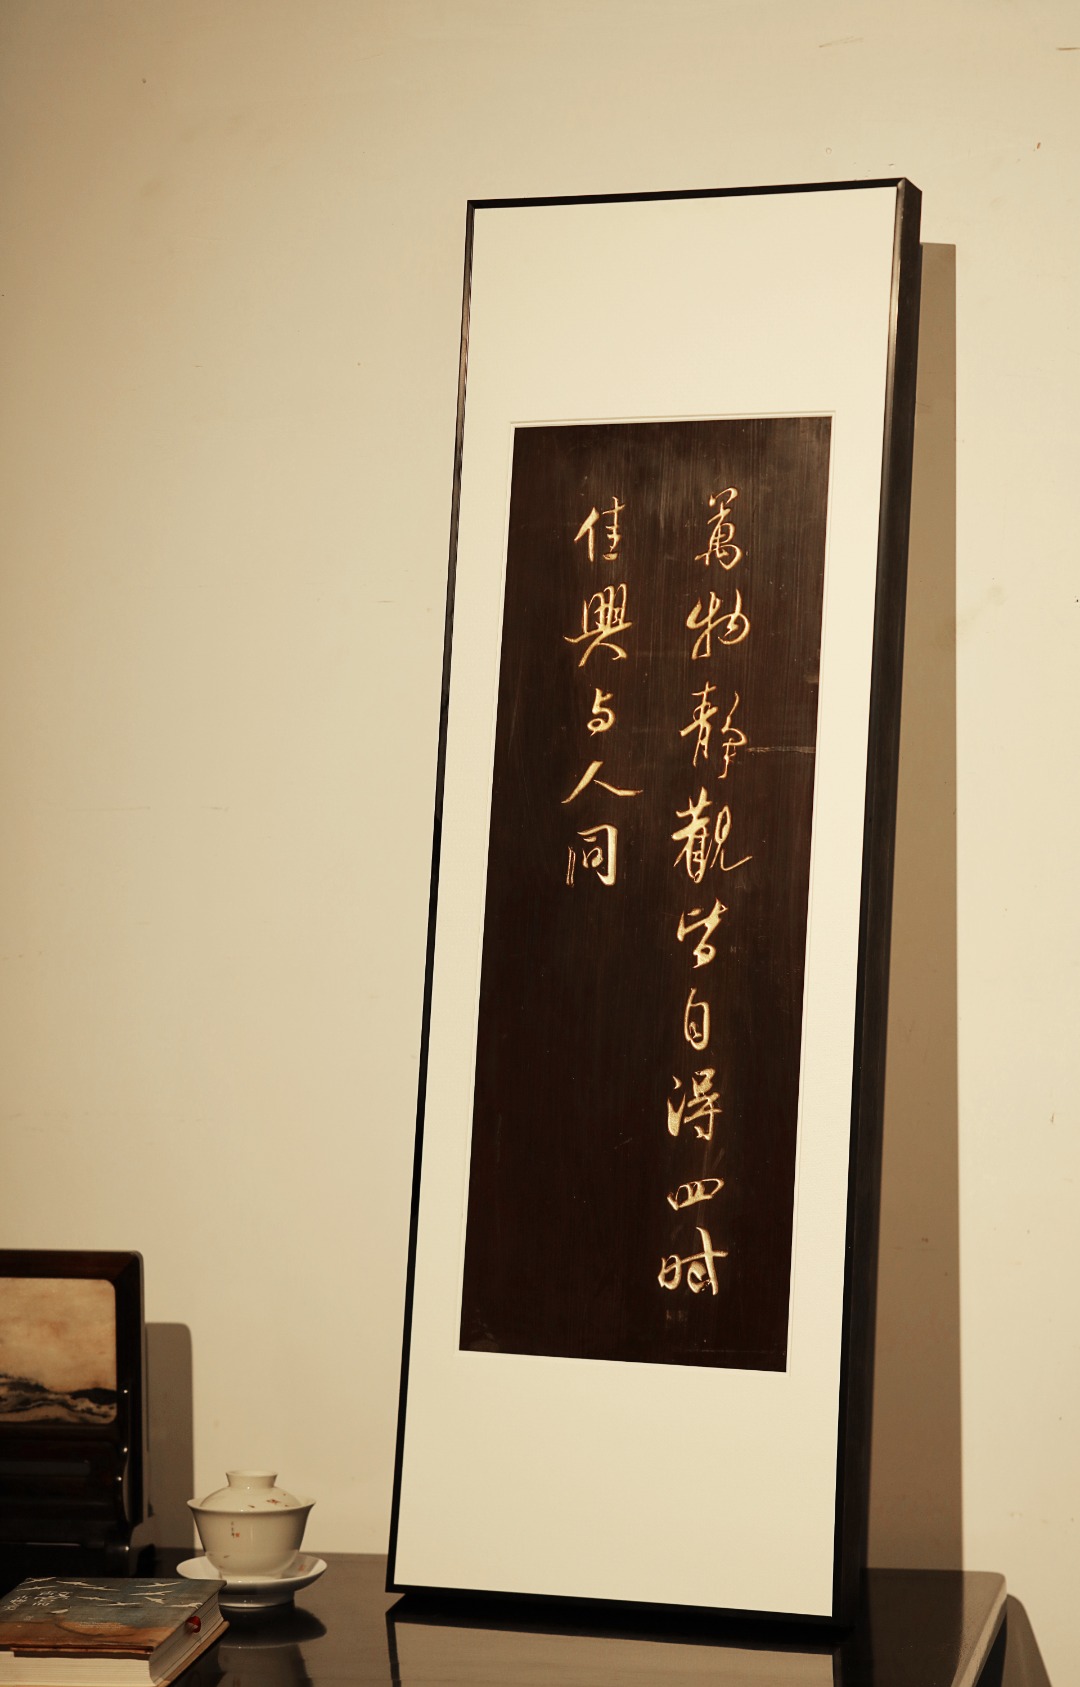 萬物静觀皆自得四时
佳興与人同